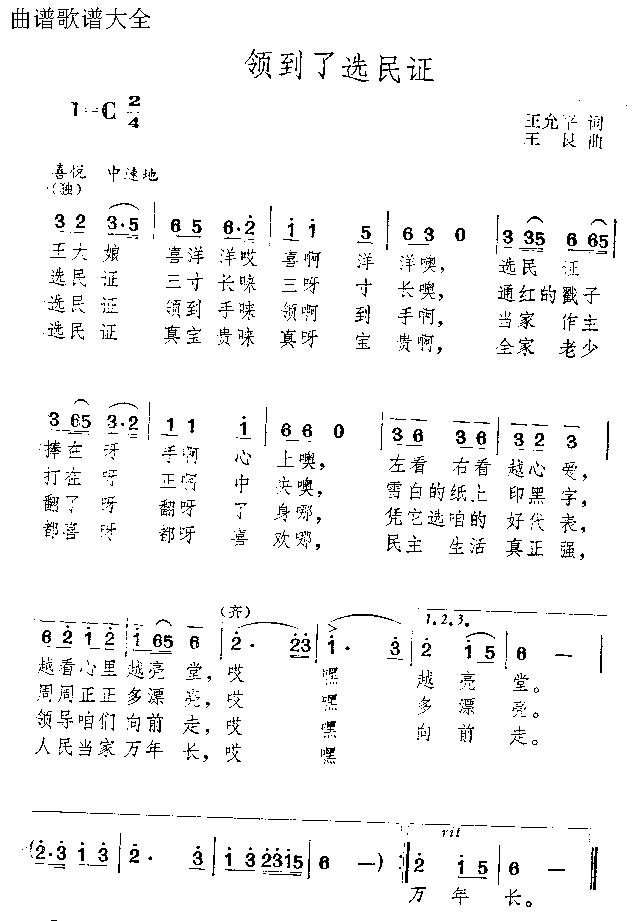 曲谱歌谱大全
领到了选民证
1=C 2/4
王允平 词
王良 曲
喜悦 中速地
(独)
3 2 3·5 6 5 6·2 1 1 5 6 3 0 3 35 6 65
王大娘 喜洋洋哎 喜啊 洋 洋噢, 选民证
选民证 三寸长唻 三呀 寸 长噢, 通红的戳子
选民证 领到手唻 领啊 到 手啊, 当家 作主
选民证 真宝贵唻 真呀 宝 贵啊, 全家 老少
3 65 3·2 1 1 1 6 6 0 3 6 3 6 3 2 3
捧在呀 手啊 心 上噢, 左看 右看 越心爱,
打在呀 正啊 中 央噢, 雪白的纸上 印黑字,
翻了呀 翻呀 了 身哪, 凭它选咱的 好代表,
都喜呀 都呀 喜 欢哪, 民主 生活 真正强,
(齐)
1.2.3.
6 2 1 2 1 65 6 2· 23 1· 3 2 1 5 6 —
越看心里越亮堂, 哎 嘿 越亮堂。
周周正正多漂亮, 哎 嘿 多漂亮。
领导咱们向前走, 哎 嘿 向前走。
人民当家万年长, 哎 嘿
rit
(2·3 1 3 2· 3 1 3 2315 6 —) 2 1 5 6 —
万年长。